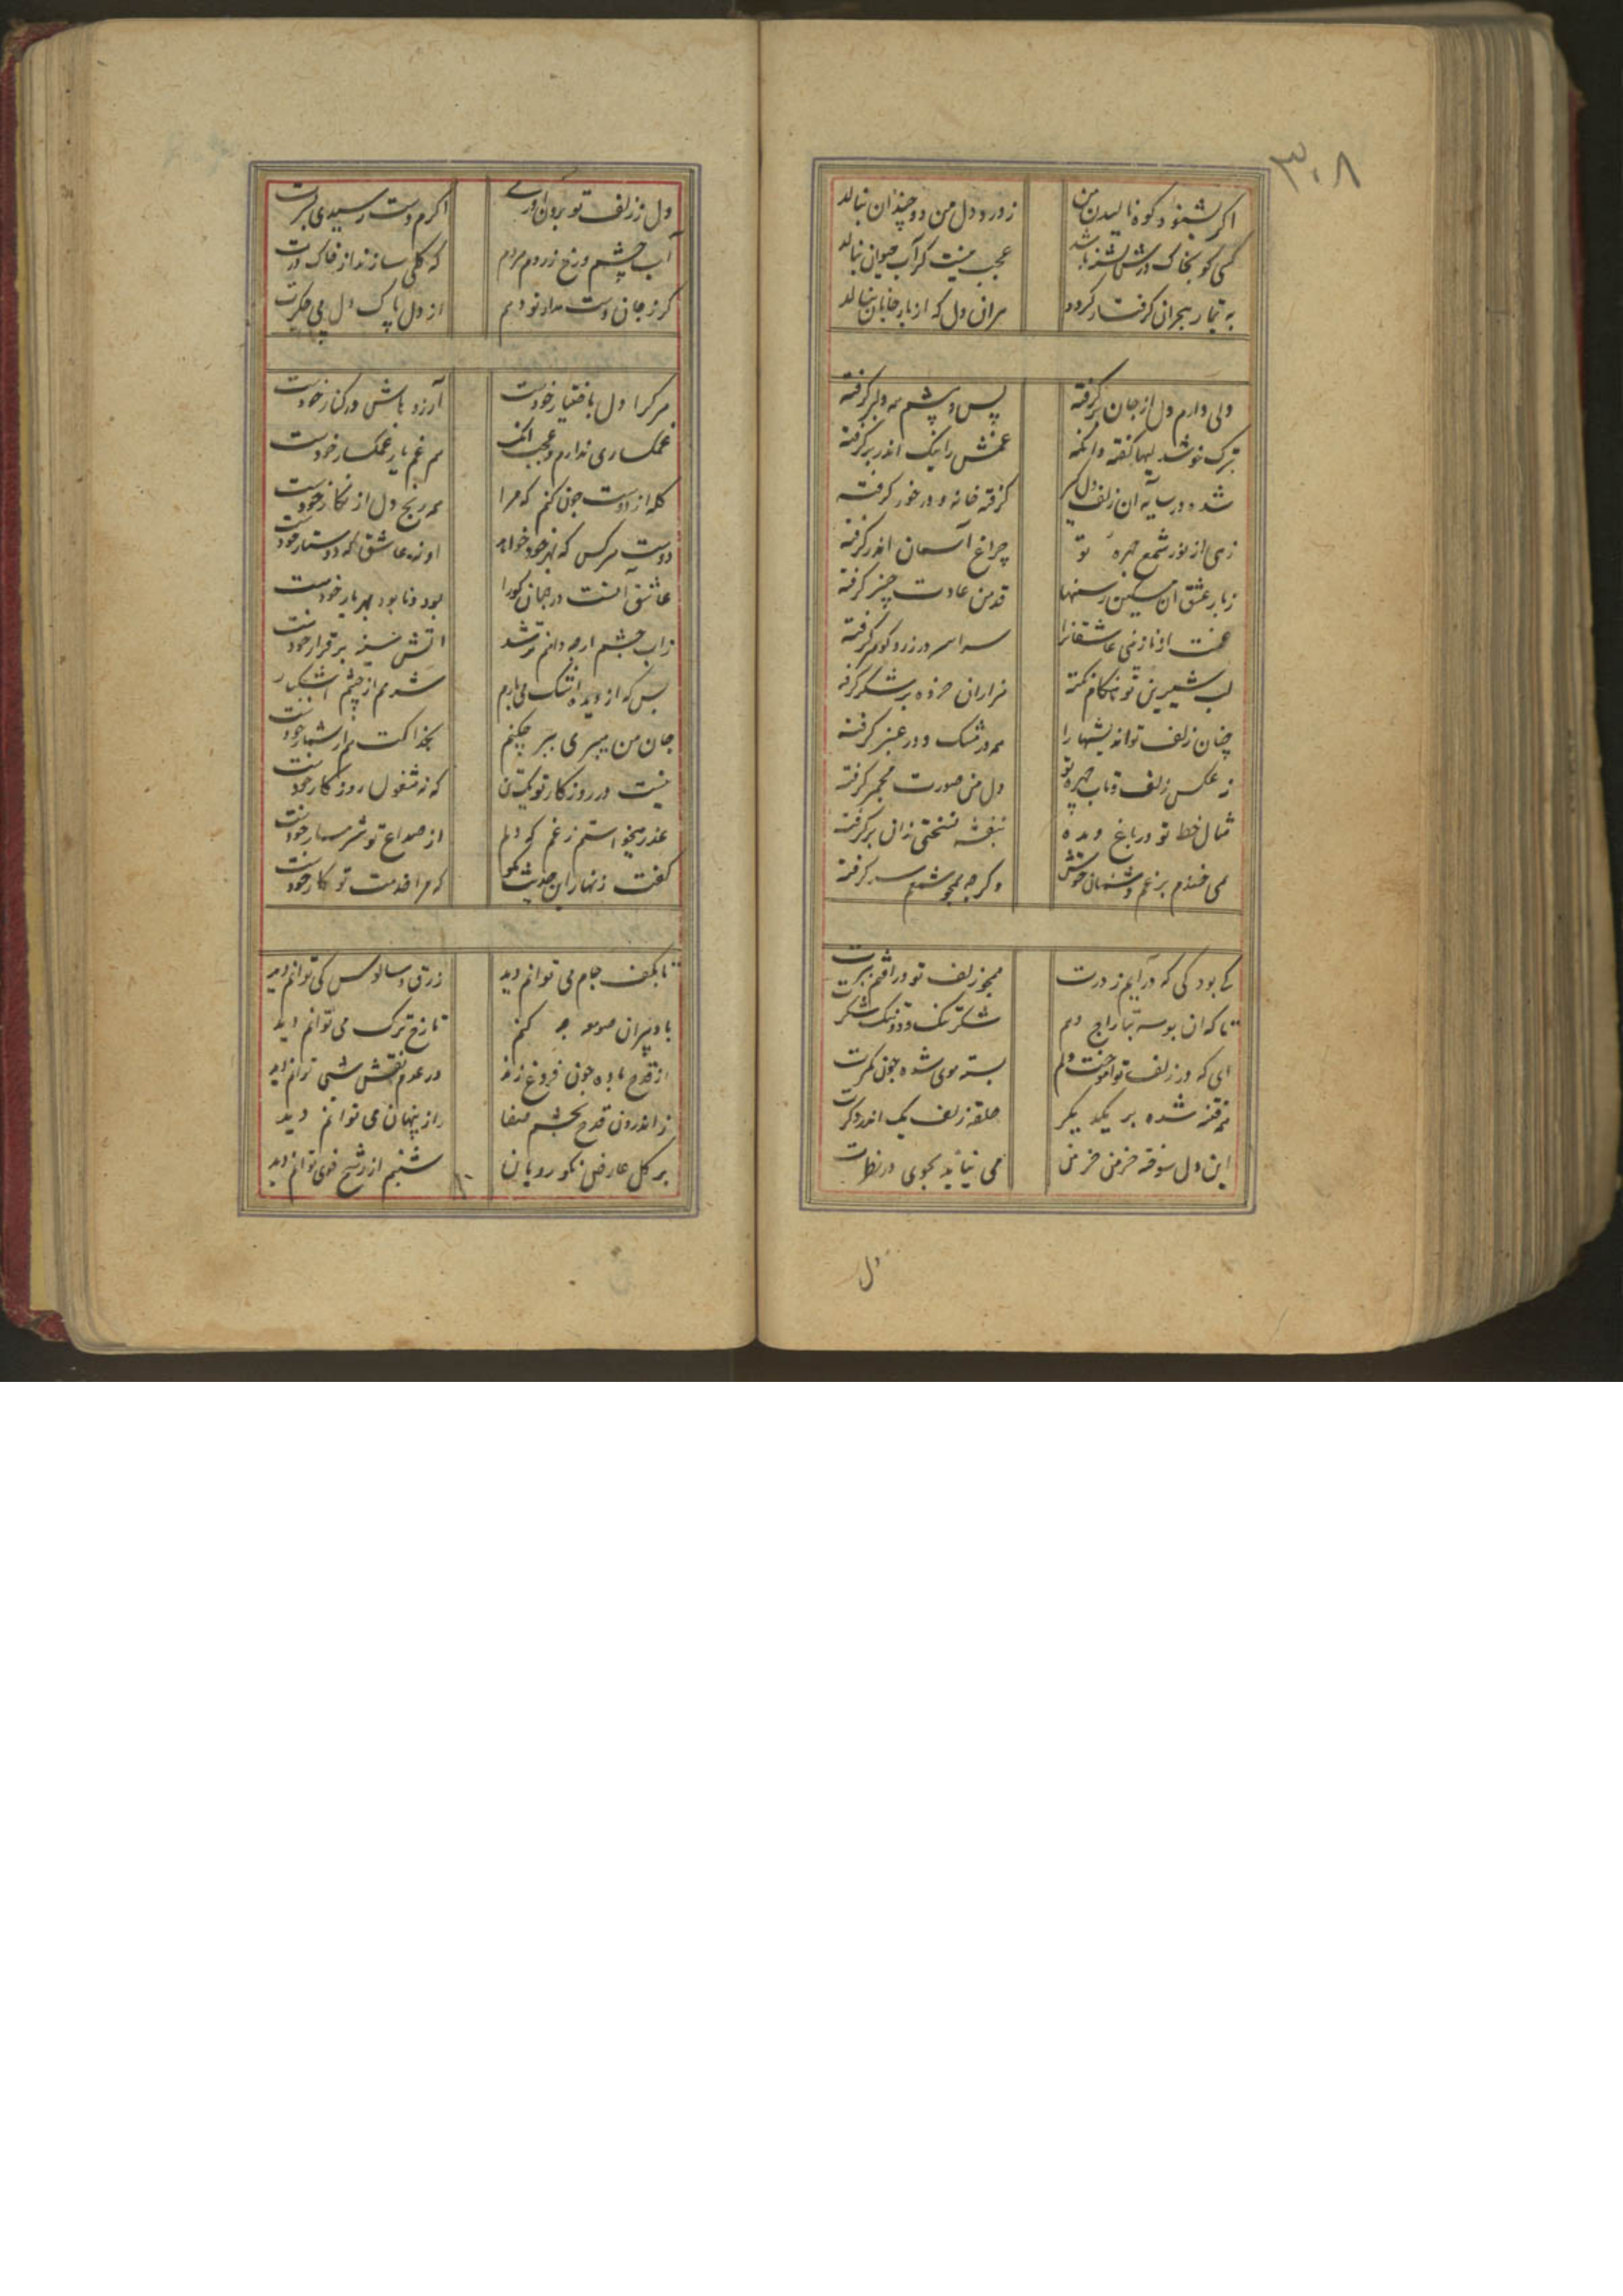 ۳۰۸
اگر بشنود کوه نالیدن من
ز درد دل من دو چندان بنالد
کسی کو بخاک درش تشنه باشد
عجب نیست کز آب حیوان بنالد
به تیمار هجران گرفتار گردد
هران دل که از بار جانان بنالد
دلی دارم دل از جان برگرفته
پس و پشم همه دلبر گرفته
بترک خوشدلیها گفته وانگه
غمش را نیک اندر بر گرفته
شده در سایه آن زلف دلگیر
گرفته خانه و در خور گرفته
زهی از نور شمع چهره تو
چراغ آسمان اندر گرفته
ز بار عشق آن مسکین رسنها
قد من عادت چنبر گرفته
غمت او نازنین عاشقانرا
سراسر در زر و گوهر گرفته
لب شیرین تو هنگام نکته
هزاران خرده بر شکر گرفته
چنان زلف تو اندیشها را
همه در مشک و در عنبر گرفته
ز عکس زلف و تاب چهره تو
دل من صورت مجمر گرفته
مثال خط تو در باغ دیده
بنفشه نسختی زان برگرفته
همی خندم بر غم دشمنان خوش
وگرچه همچو شمعم سر گرفته
کی بود کی که درآیم ز درت
همچو زلف تو در افتم ببرت
تا که آن بوسه بتاراج دهم
شکر تنگ و دو تنگ شکرت
ای که در زلف تو آموخت دلم
بسته موی شده چون کمرت
فتنه شده بر یکدیگر
حلقه زلف یک اندر دگرت
این دل سوخته خرمن خرمن
می نیاید بجوی در نظرت
دل
دل ز زلف تو برون آوردی
اگرم دست رسیدی بسرت
آب چشم و رخ زردم مردم
که گلی سازند از خاک درت
گرنه جان دوست ندارد تو دهم
از دل پاک دل بی جگرت
هرکرا دل باختیار خودست
آرزوهاش در کنار خودست
غمگساری ندارم و عجب آنک
هم غم یار غمگسار خودست
گله از دوست چون کنم که مرا
همه رنج دل از نگار خودست
دوست هرکس که بهر خود خواهد
او نه عاشق که دوستار خودست
عاشق آنست در جهان کورا
بود و نابود بهر یار خودست
زاب چشم ارچه دانم تر شد
آتش سینه برقرار خودست
بس که از دیده اشک می بارم
شرمم از چشم اشکبار
جان من میبری ببر چکنم
نیست در روزگار تو یک تن
که نه مشغول روزگار خودست
عذر میخواستم ز غم که دلم
از صداع تو شرمسار خودست
گفت زنهار این حدیث مگو
که مرا خدمت تو کار خودست
تا بکف جام می توانم دید
زرق و سالوس کی توانم دید
با دپیران صومعه چه کنم
تا رخ ترک می توانم دید
از قدح باده چون فروغ زند
در عدم نقش شی توانم دید
ز اندرون قدح بچشم صفا
راز پنهان می توانم دید
بر گل عارض نکو رویان
شبنم از رشح خوی توانم دید